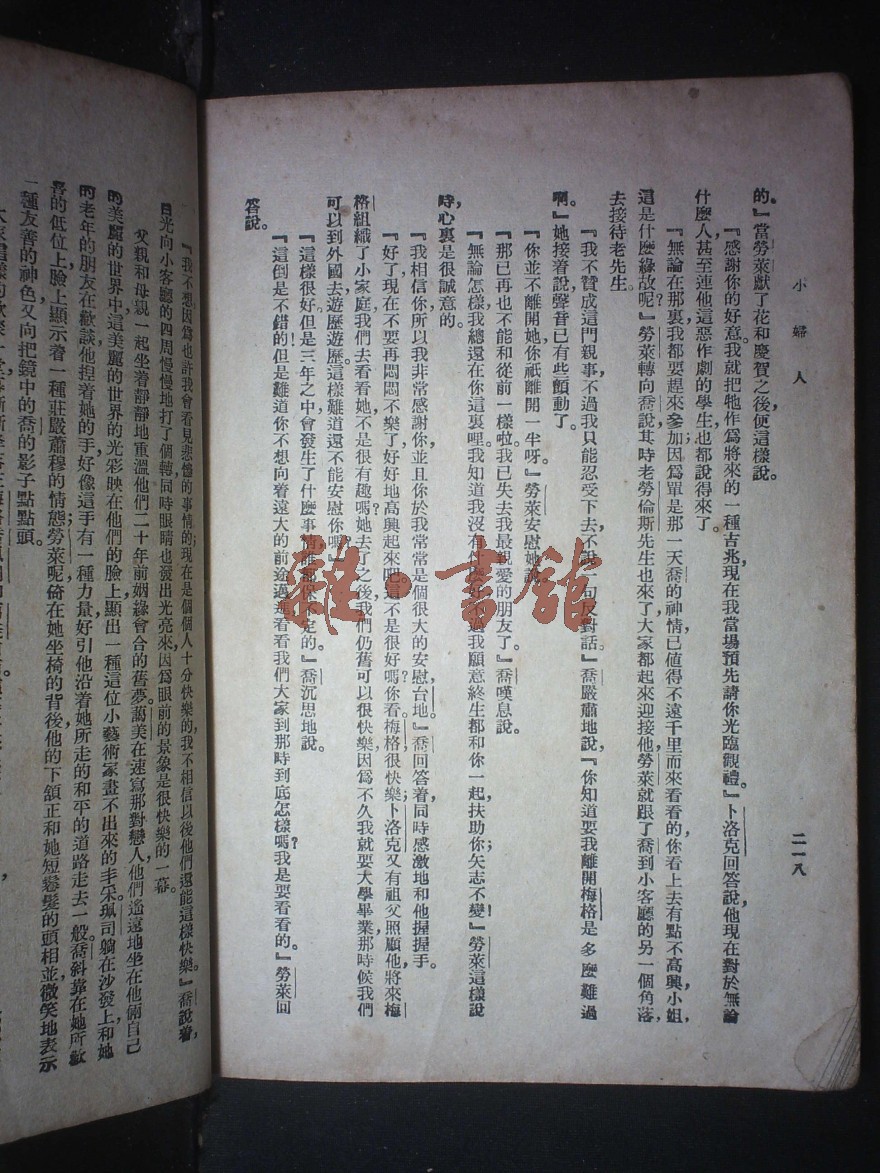 小婦人
二一八
的。』當勞萊獻了花和慶賀之後便這樣說。
『感謝你的好意。我就把牠作爲將來的一種吉兆,現在我當場預先請你光臨觀禮。』卜洛克回答說,他現在對於無論
什麼人,甚至連他這惡作劇的學生也都說得來了。
『無論在那裏我都要趕來參加,因爲單是那一天喬的神情已值得不遠千里而來看看的,你看上去有點不高興,小姐,
這是什麼緣故呢?』勞萊轉向喬說,其時老勞倫斯先生也來了,大家都起來迎接他,勞萊就跟了喬到小客廳的另一個角落
去接待老先生。
『我不贊成這門親事,不過我只能忍受下去,不說一句反對話。』喬嚴肅地說,『你知道要我離開梅格是多麼難過
啊。』她接着說,聲音已有些顫動了。
『你並不離開她,你祇離開一半呀。』勞萊安慰她說。
『那已再也不能和從前一樣啦,我已失去我最親愛的朋友了。』喬嘆息說。
『無論怎樣我總還在你這裏哩。我知道我沒有什麼好,不過我願意終生都和你一起扶助你,矢志不變!』勞萊這樣說
時,心裏是很誠意的。
『我相信你,所以我非常感謝你,並且你於我常常是個很大的安慰,台地。』喬回答着,同時感激地和他握握手。
『好了,現在不要再悶悶不樂了,好好地高興起來吧。這不是很好嗎?你看,梅格很快樂,卜洛克又有祖父照顧他,將來梅
格組織了小家庭,我們去看看她,不是很有趣嗎?她去了之後我們仍舊可以很快樂,因爲不久我就要大學畢業,那時候我們
可以到外國去遊歷遊歷。這樣難道還不能安慰你嗎?』
『這樣很好,但是三年之中會發生了什麼事情,誰都保不定的。』喬沉思地說。
『這倒是不錯的!但是難道你不想向着遠大的前途邁進看看我們大家到那時到底怎樣嗎?我是要看看的。』勞萊回
答說。
『我不想,因爲也許我會看見悲慘的事情的,現在是個個人十分快樂的,我不相信以後他們還能這樣快樂。』喬說着,
目光向小客廳的四周慢慢地打了個轉,同時眼睛也發出光亮來,因爲眼前的景象是很快樂的一幕。
父親和母親一起坐着靜靜地重溫他們二十年前姻緣會合的舊夢。藹美在速寫那對戀人,他們遙遠地坐在他倆自己
的美麗的世界中,這美麗的世界的光彩映在他們的臉上,顯出一種這位小藝術家畫不出來的丰采。珮司躺在沙發上,和她
的老年的朋友在歡談,他捏着她的手,好像這手有一種力量,好引他沿着她所走的和平的道路走去一般。喬斜靠在她所歡
喜的低位上,臉上顯示着一種莊嚴蕭穆的情態;勞萊呢,倚在她坐椅的背後,他的下頷正和她短鬈髮的頭相並,微笑地表示
一種友善的神色,又向把鏡中的喬的影子點點頭。
雜書館